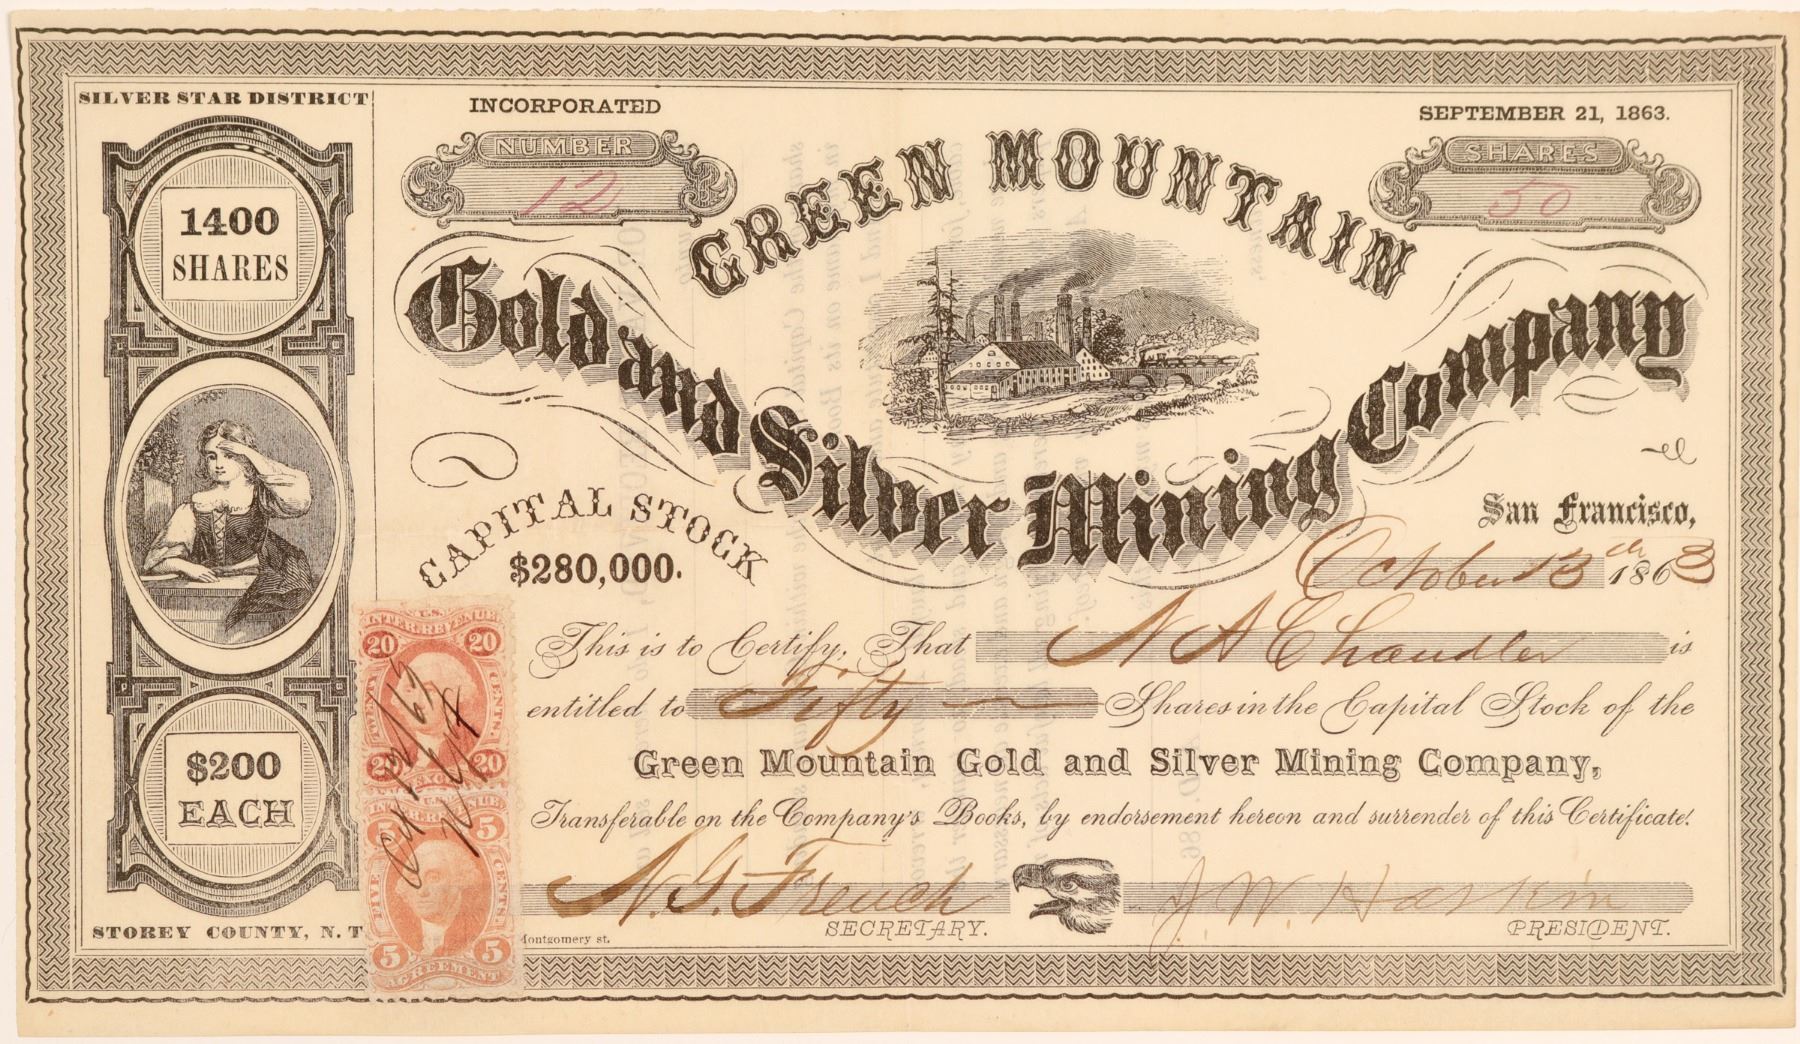 SILVER STAR DISTRICT
INCORPORATED
SEPTEMBER 21, 1863.
NUMBER
12
SHARES
50
1400
SHARES
GREEN MOUNTAIN
Gold and Silver Mining Company
CAPITAL STOCK
$280,000.
San Francisco,
October 13th 1863
This is to Certify, That N A Chandler is
entitled to Fifty Shares in the Capital Stock of the
Green Mountain Gold and Silver Mining Company,
Transferable on the Company's Books, by endorsement hereon and surrender of this Certificate.
$200
EACH
N. G. French
SECRETARY.
J. W. Haskin
PRESIDENT.
STOREY COUNTY, N. T
Montgomery st.
U.S.
INTER. REVENUE
20 20
TWENTY CENTS.
20 20
INTER. REVENUE
5 5
FIVE CENTS.
5 5
AGREEMENT